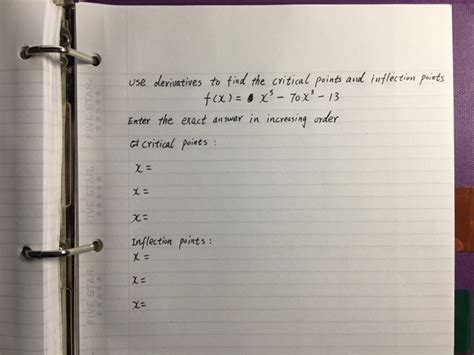 use derivatives to find the critical points and inflection points
f(x) = x⁵ - 70x³ - 13
Enter the exact answer in increasing order
critical points :
x =
x =
x =
Inflection points :
x =
x =
x =
FIVE STAR.
FIVE STAR.
FIVE STAR.
FIVE STAR.